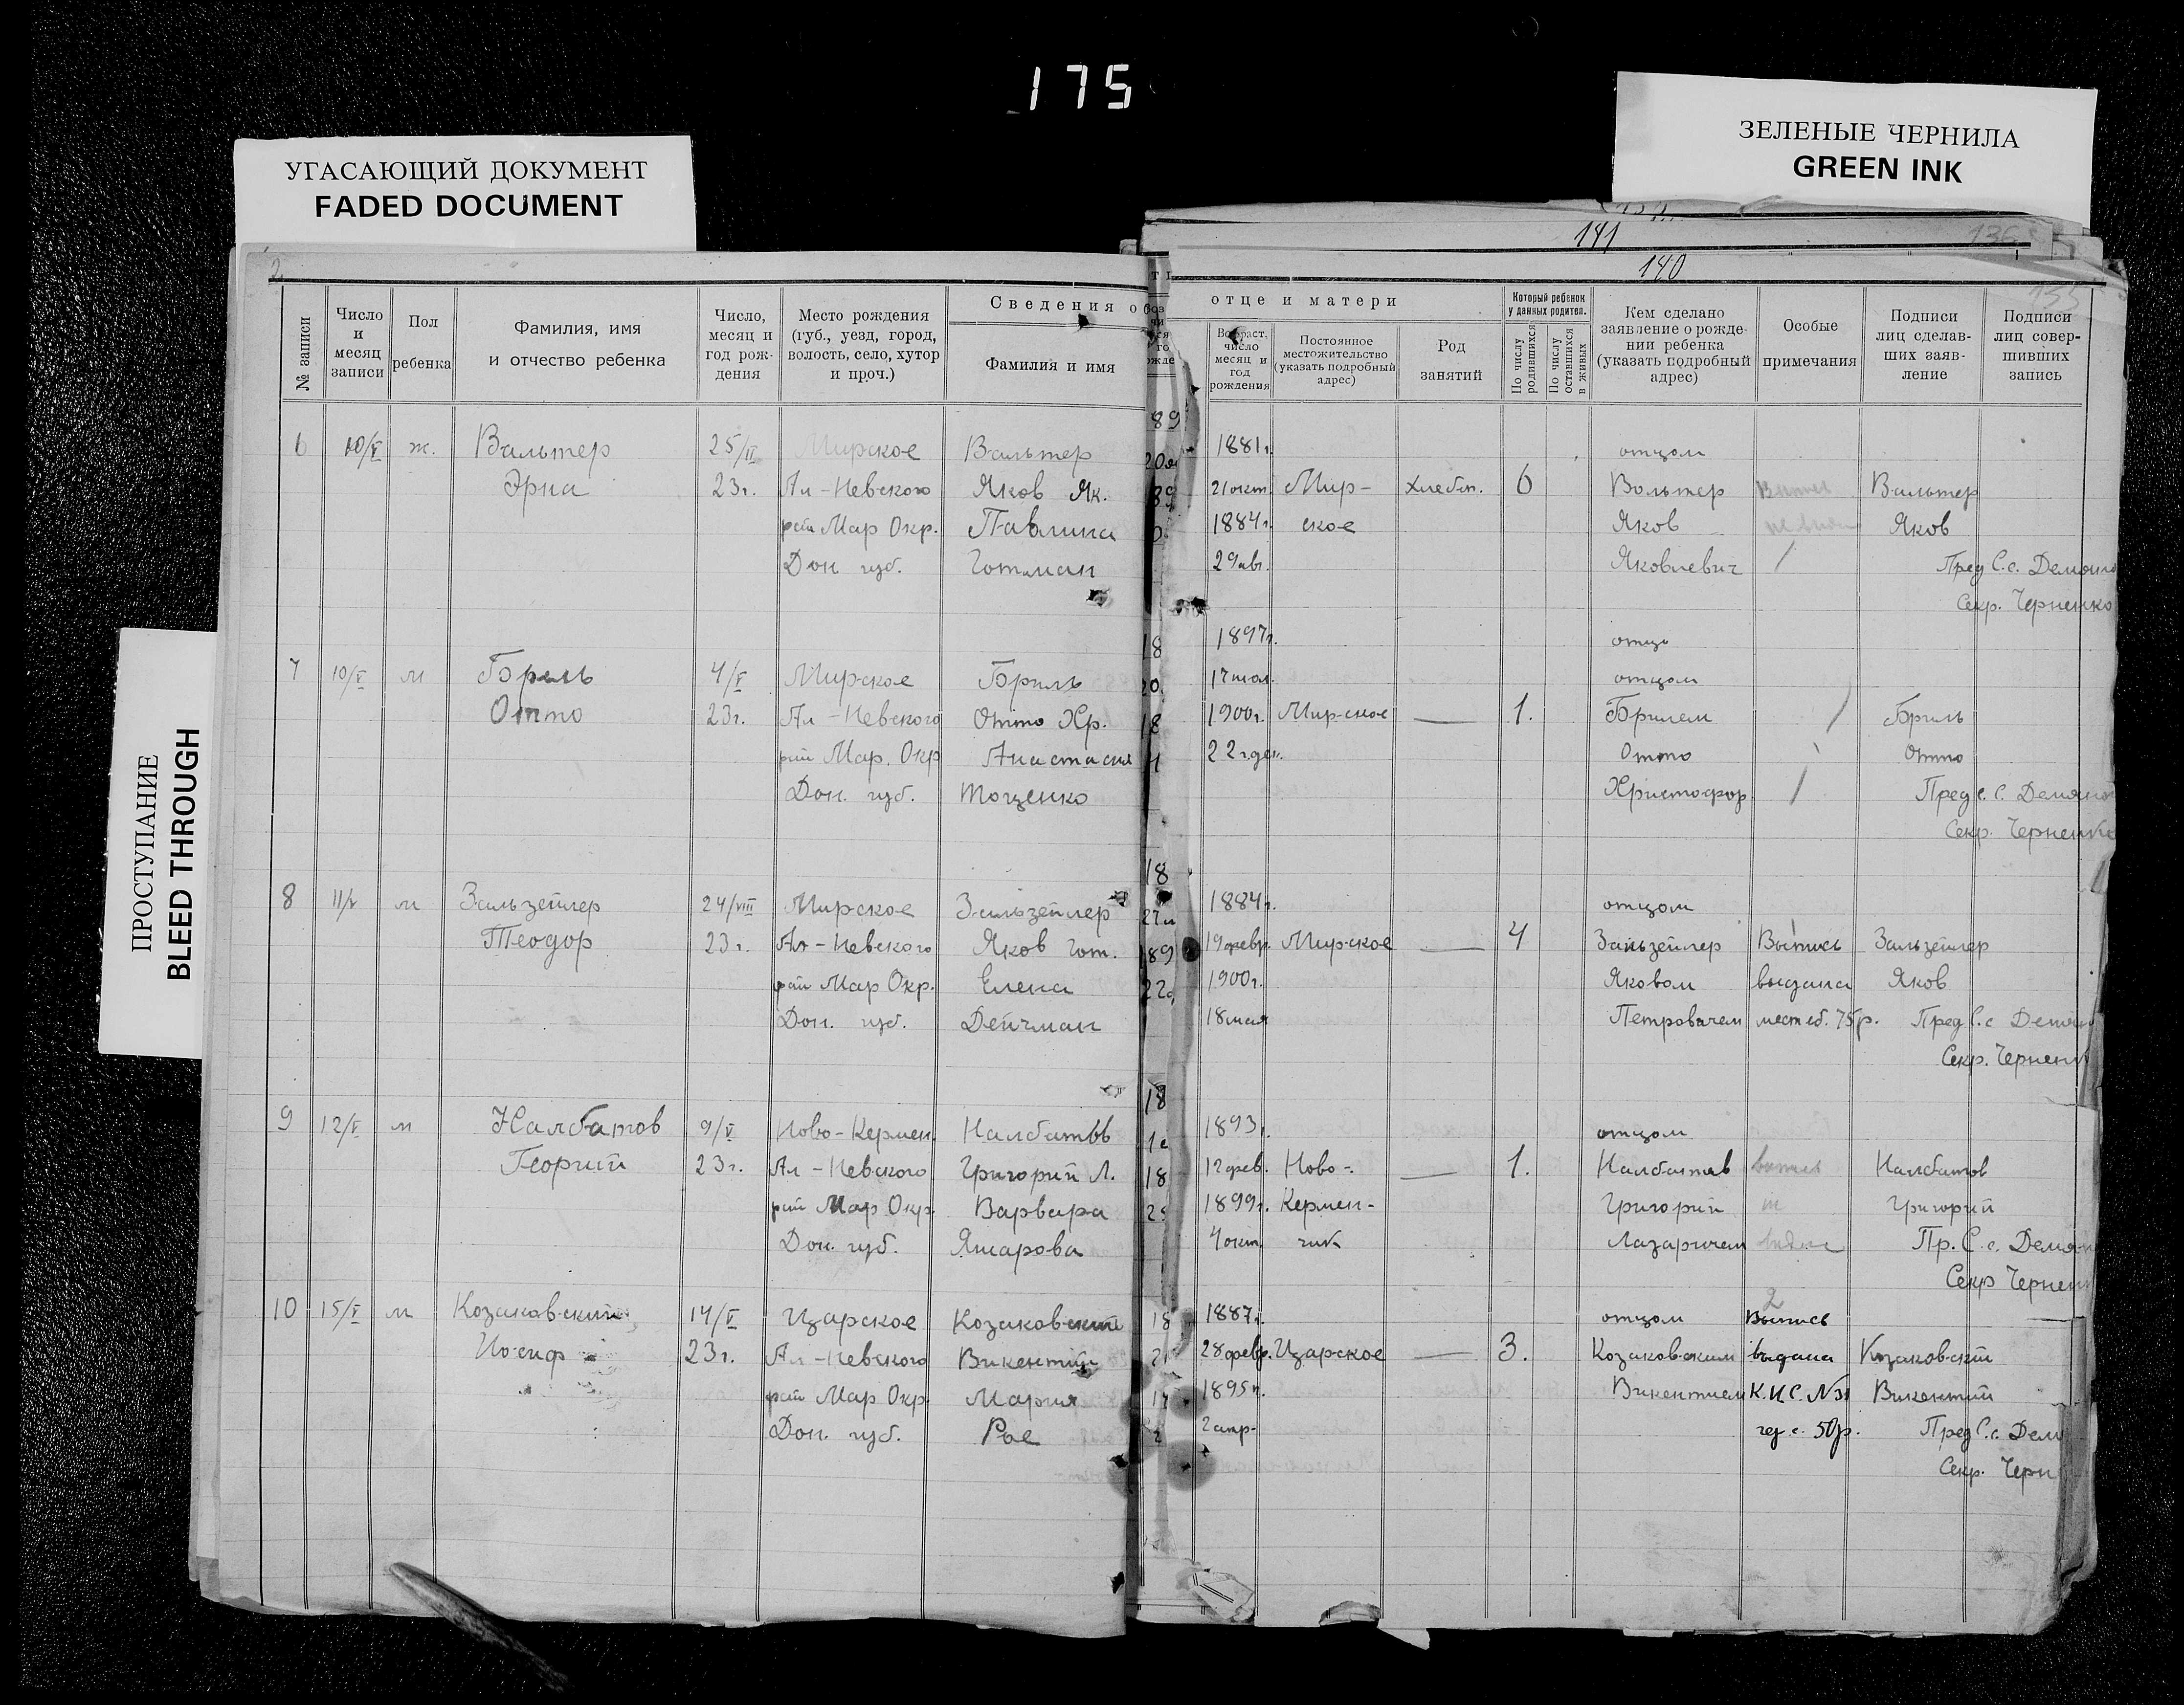 175
УГАСАЮЩИЙ ДОКУМЕНТ
FADED DOCUMENT
ЗЕЛЕНЫЕ ЧЕРНИЛА
GREEN INK
ПРОСТУПАНИЕ
BLEED THROUGH
141
136
2
140
135
№ записи
Число и месяц записи
Пол ребенка
Фамилия, имя и отчество ребенка
Число, месяц и год рождения
Место рождения (губ., уезд, город, волость, село, хутор и проч.)
Сведения о
отце и матери
Фамилия и имя
Возраст, число месяц и год рождения
Постоянное местожительство (указать подробный адрес)
Род занятий
Который ребенок у данных родител.
По числу родившихся
По числу оставшихся в живых
Кем сделано заявление о рождении ребенка (указать подробный адрес)
Особые примечания
Подписи лиц сделавших заявление
Подписи лиц совершивших запись
89
1881г. отцом
6 10/V ж. Вальтер 25/IV Мирское Вальтер
Эрна 23г. Ал-Невского Яков Як. 21 окт. Мир- хлебоп. 6 Вольтер Вальтер
рай Мар Окр. Павлина 1884г. ское Яков Яков
Дон губ. Готман 29 авг. Яковлевич Пред С.с.
Секр. Черненко
18 1897г. отцо
7 10/V м Бриль 4/V Мирское Бриль 17 мая. отцом
Отто 23г. Ал-Невского Отто Хр. 18 1900г. Мирское — 1. Брилем Бриль
рай Мар. Окр Анастасия 22 дек. Отто Отто
Дон. губ. Тоценко Христофор. Пред с.с.
Секр. Черненко
18
8 11/V м Зальзейлер 24/VIII Мирское Зальзейлер 1884г. отцом
Теодор 23г. Ал-Невского Яков Гот. 189 19 февр. Мирское — 4 Зальзейлер Выпись Зальзейлер
рай Мар Окр. Елена 1900г. Яковом выдана Яков
Дон. губ. Дейчман 18 мая Петровичем мест сб. 75р. Пред С.с
Секр. Черненк
18
9 12/V м Налбатов 9/V Ново-Кермен. Налбатов 1893г. отцом
Георгий 23г. Ал-Невского Григорий Л. 18 12 фев. Ново- — 1. Налбатов Налбатов
рай Мар Окр. Варвара 1899г. Кермен- Григорий Григорий
Дон. губ. Яшарова 4 окт. чик Лазаричем Пр. С.с.
Секр Чернен
2
10 15/V м Козаковский 14/V Царское Козаковский 18 1887г. отцом Выпись
Иосиф 23г. Ал-Невского Викентий 28 февр. Царское — 3. Козаковским выдана Козаковский
рай Мар Окр. Мария 1895г. Викентием К.И.С. №31 Викентий
Дон. губ. Рое 2 апр- 50р. Пред С.с.
Секр. Черн